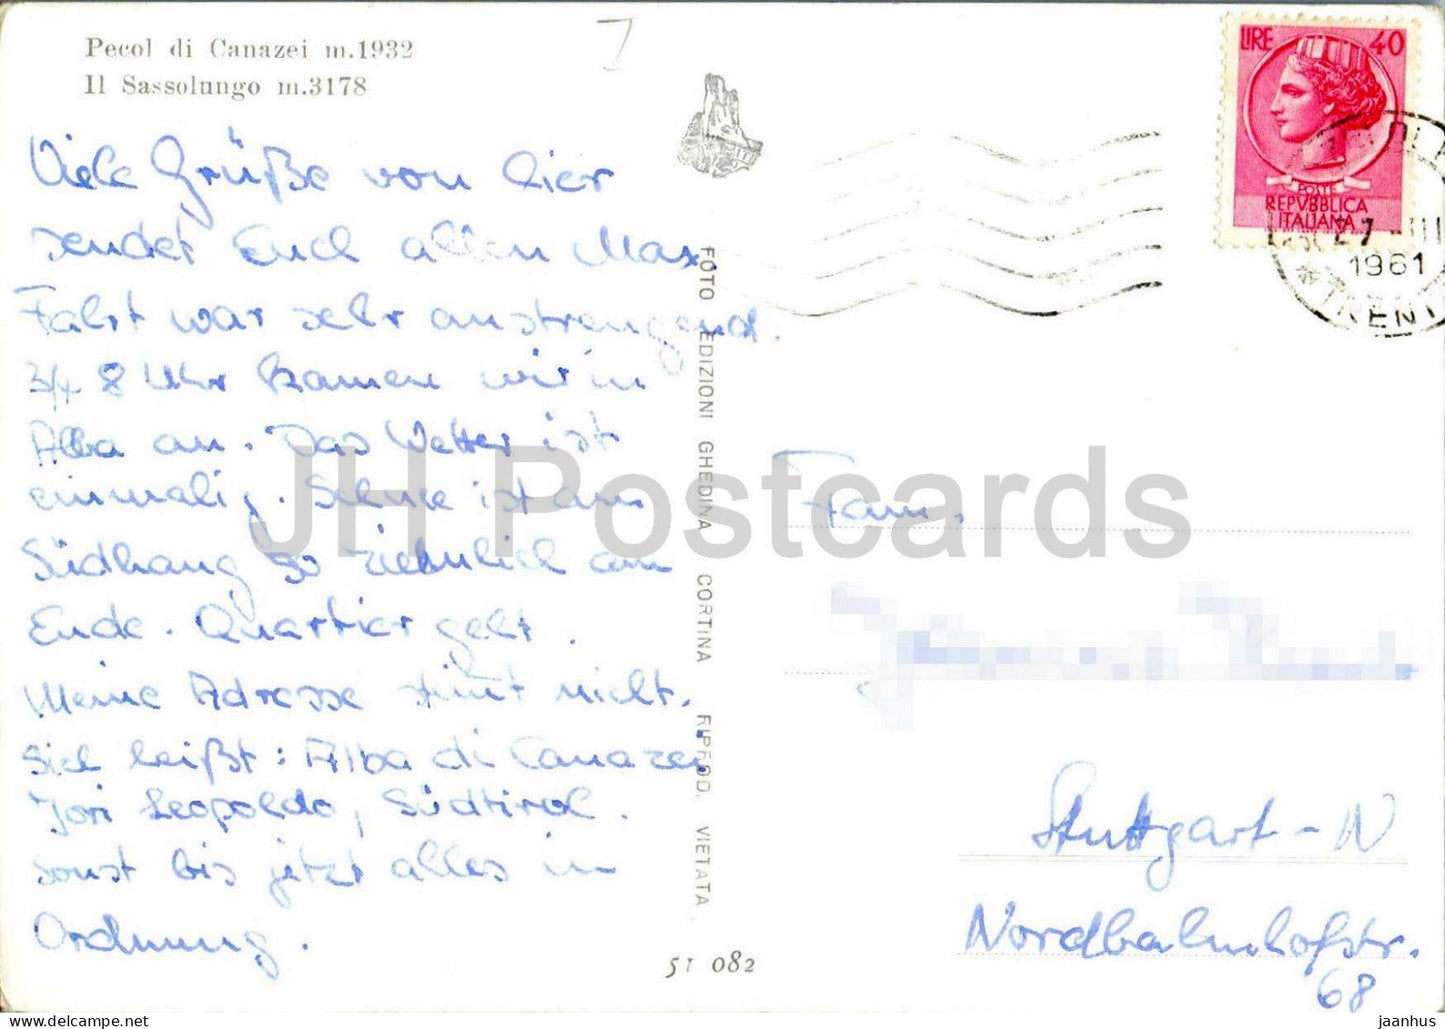 Pecol di Canazei m.1932
Il Sassolungo m.3178
Viele Grüße von hier
sendet Euch allen Max.
Fahrt war sehr anstrengend.
3/4 8 Uhr kamen wir in
Alba an. Das Wetter ist
einmalig. Schnee ist am
Südhang so ziemlich am
Ende. Quartier geht.
Meine Adresse stimt nicht.
Sie heißt: Alba di Canazei
Jori Leopoldo, Südtirol.
sonst bis jetzt alles in
Ordnung.
FOTO EDIZIONI GHEDINA CORTINA RIPROD. VIETATA
51 082
LIRE 40
POSTE
REPVBBLICA
ITALIANA
27 III
1961
Fam.
Stuttgart-N
Nordbahnhofstr.
68
JH Postcards
jaanhus — myshopify.com